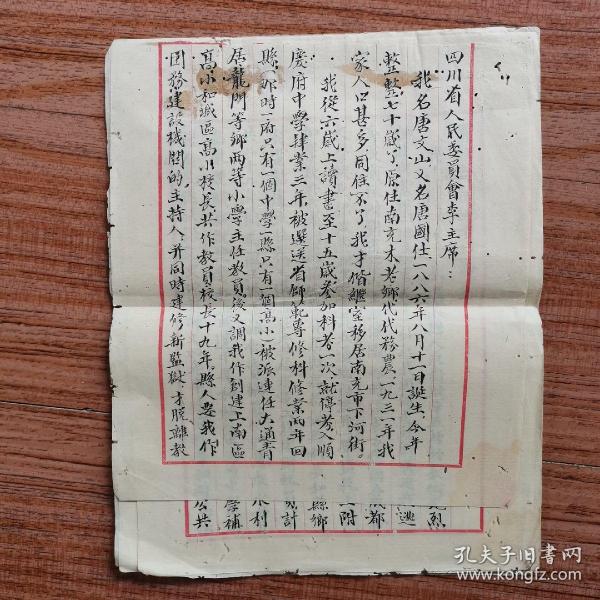 四川省人民委員會李主席：
我名唐文山又名唐國仕一八八六年八月十一日誕生、今年
整整七十歲了原住南充木老鄉代代務農一九三一年我
家人口甚多同住不了我才偕繼室移居南充市下河街。
我從六歲上讀書至十五歲參加科考一次就停考入順
慶府中學肄業三年被選送省師範專修科修業兩年回
縣（那時一府只有一個中學一縣只有一個高小）被派連任大通青
居龍門等鄉兩等小學主任教員後又調我作創建上南區
高小和城區高小校長共作教員校長十九年，縣人要我作
因務建設機關的主持人、並同時建修新監獄才脫離教
烈
逃
成都
附
縣鄉
計
水利
學補
公共
孔夫子旧書网
www.kongfz.com